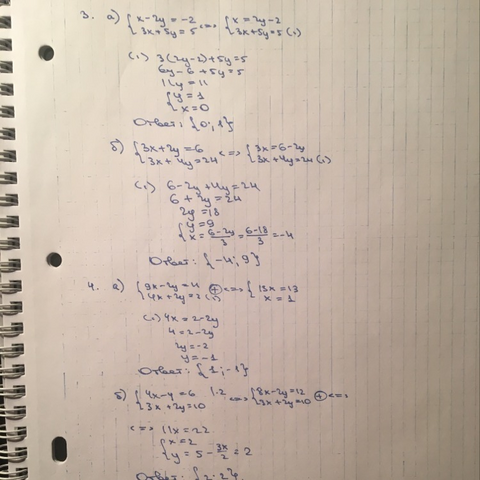 3. а) {x-2y=-2 <=> {x=2y-2
{3x+5y=5 {3x+5y=5 (1)
(1) 3(2y-2)+5y=5
6y-6+5y=5
11y=11
{y=1
{x=0
Ответ: {0; 1}
б) {3x+2y=6 <=> {3x=6-2y
{3x+4y=24 {3x+4y=24 (1)
(1) 6-2y+4y=24
6+2y=24
2y=18
{y=9
{x=6-2y/3=6-18/3=-4
Ответ: {-4; 9}
4. а) {9x-2y=4 (+) <=> {13x=13
{4x+2y=2 (1) x=1
(1) 4x=2-2y
4=2-2y
2y=-2
y=-1
Ответ: {1; -1}
б) {4x-y=6 |·2 <=> {8x-2y=12 (+) <=>
{3x+2y=10 {3x+2y=10
<=> 11x=22
{x=2
{y=5-3x/2=2
Ответ: {2; 2}